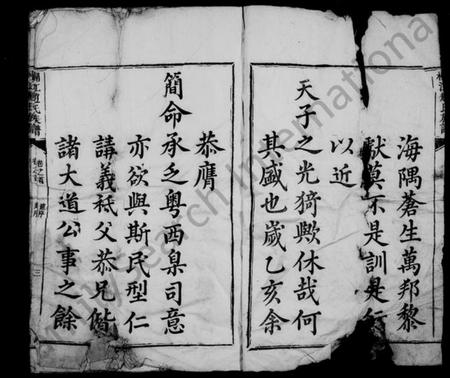 海隅蒼生萬邦黎
獻莫不是訓是行
以近
天子之光猗歟休哉何
其盛也歲乙亥余
恭膺
簡命承乏粵西臬司意
亦欲與斯民型仁
講義祗父恭兄偕
諸大道公事之餘
氏族譜
卷之首
三